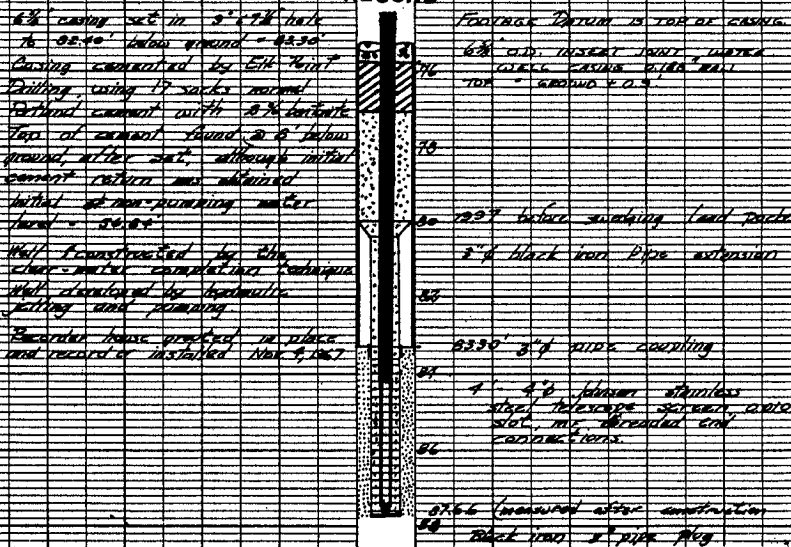 6⅝" casing set in 9" & 7⅞" hole
to 82.40' below ground = 83.30'
Casing cemented by Elk Point
Drilling, using 17 sacks normal
Portland cement with 2% bentonite
Top of cement found @ 8' below
ground, after set, although initial
cement return was obtained
Initial non-pumping water
level =
Well constructed by the
clear-water completion technique
Well developed by hydraulic
jetting and pumping
Recorder house grouted in place
and recorder installed Nov 4, 1967
76
78
80
82
84
86
88
FOOTAGE DATUM IS TOP OF CASING.
6⅝" O.D. INSERT JOINT, WATER
WELL CASING 0.188" WALL
TOP = GROUND + 0.9'
79.97 before swedging lead packer
3"ø black iron pipe extension
83.30' 3"ø pipe coupling
4' - 4"ø Johnson stainless
steel telescope screen, 0.010
slot, threaded end
connections.
87.66 (measured after construction
Black iron 3" pipe plug